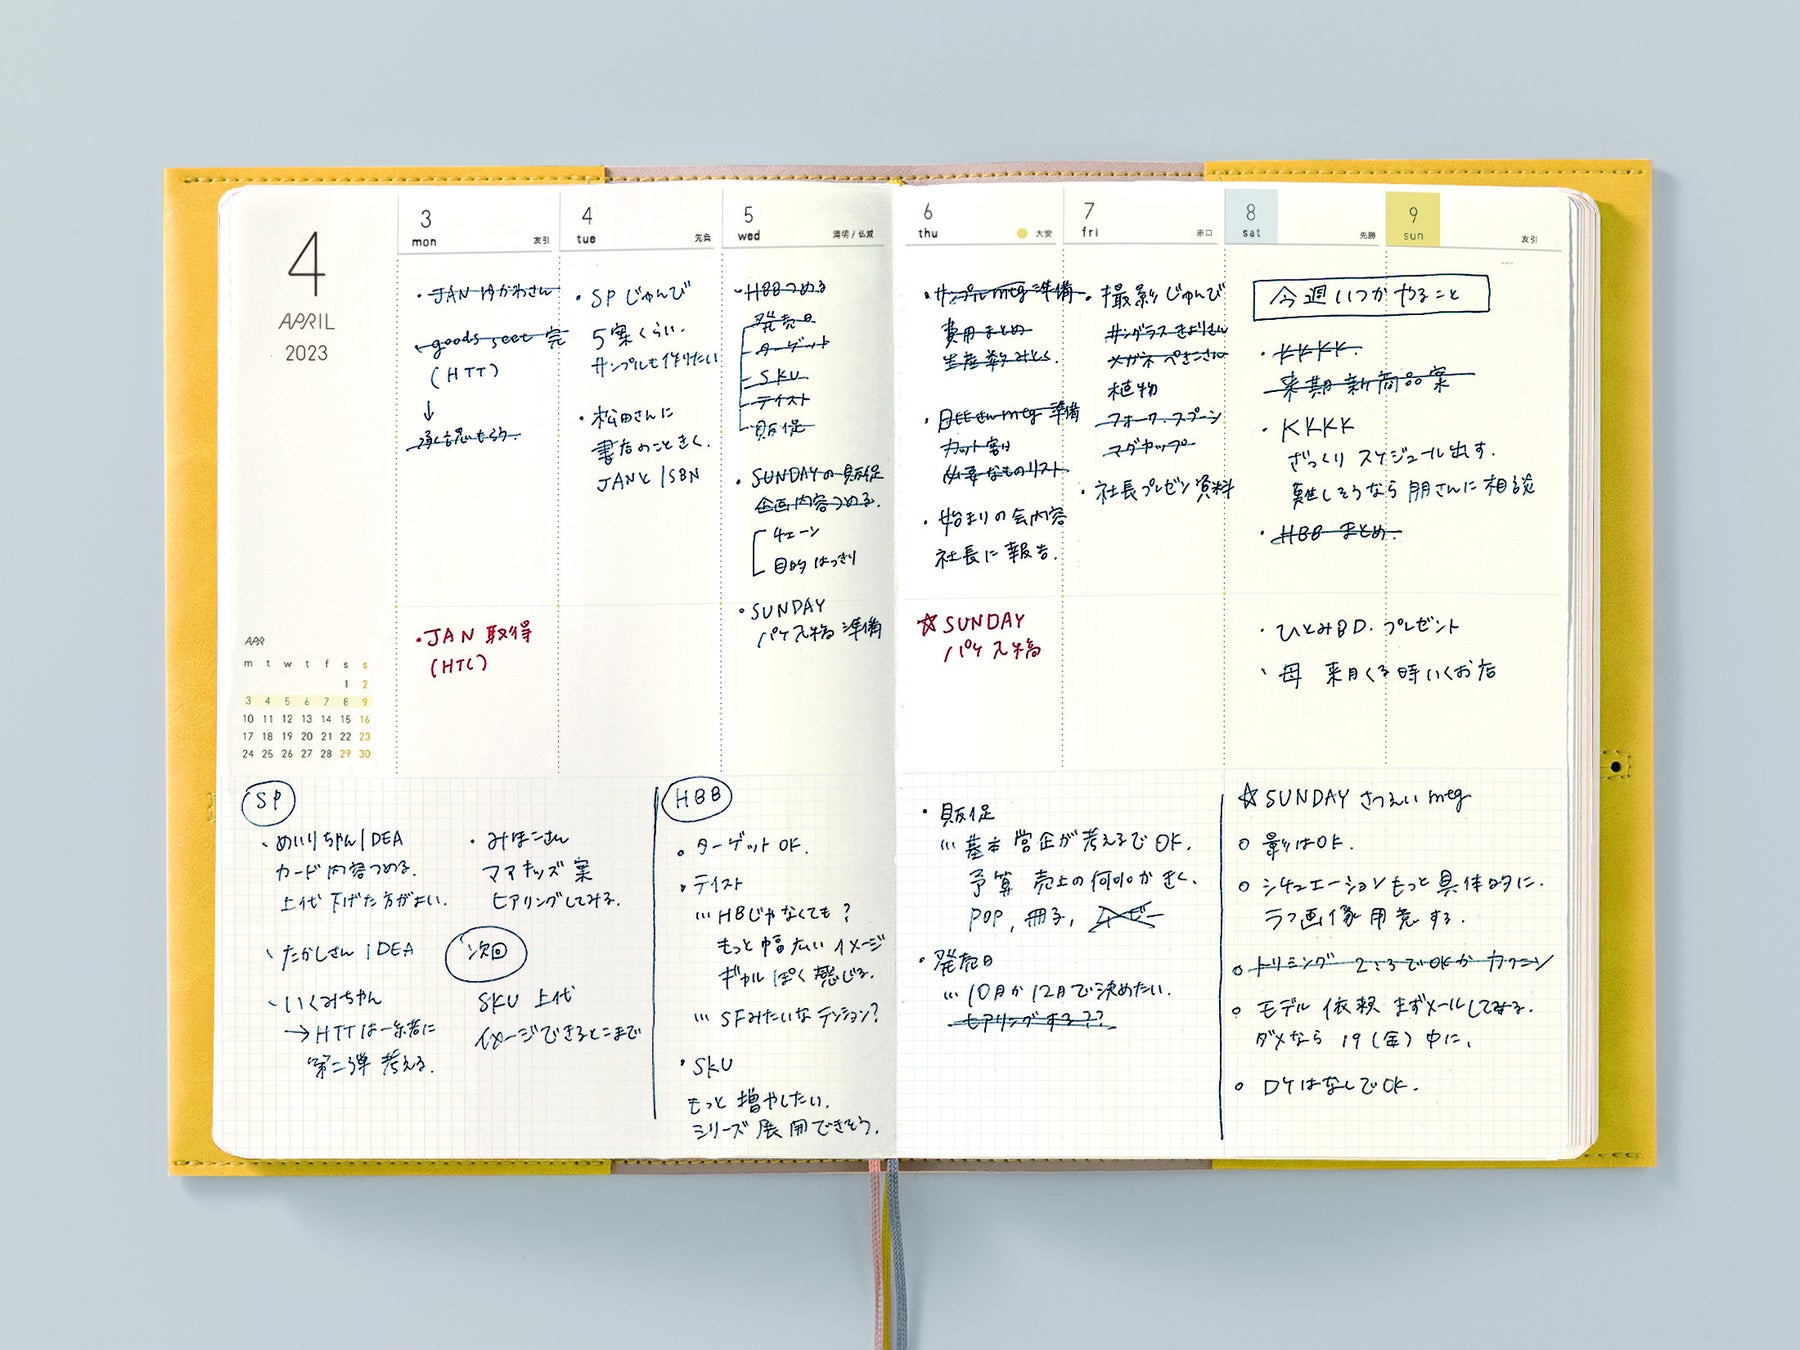 4
APRIL
2023
3
mon
友引
・JAN ゆかわさん
・goods seet 完
(HTT)
↓
承認もらう.
・JAN 取得
(HTC)
4
tue
先負
・SPじゅんび
5案くらい.
サンプルも作りたい
・松田さんに
書店のこときく.
JANとISBN
5
wed
清明 / 仏滅
・HBBつめる
発売日
ターゲット
SKU
テイスト
販促
・SUNDAYの販促
企画内容つめる.
チェーン
目的はっきり
・SUNDAY
パケ入稿 準備
6
thu
大安
・サンプルmtg 準備
費用まとめ
生産数みとく.
mtg 準備
カット割
必要なものリスト
・始まりの会内容
社長に報告.
☆SUNDAY
パケ入稿
7
fri
赤口
・撮影じゅんび
サングラス きよりさん
メガネ ぺきこさん
植物
フォーク.スプーン
マグカップ
・社長プレゼン資料
8
sat
先勝
9
sun
友引
今週いつかやること
・KKKK.
来期新商品案
・KKKK
ざっくりスケジュール出す.
難しそうなら朋さんに相談
・HBBまとめ.
・ひとみBD. プレゼント
・母 来月くる時いくお店
APR
m t w t f s s
1 2
3 4 5 6 7 8 9
10 11 12 13 14 15 16
17 18 19 20 21 22 23
24 25 26 27 28 29 30
SP
・めいりちゃんIDEA
カード内容つめる.
上代下げた方がよい.
・たかしさんIDEA
・いくみちゃん
→HTTは一緒に
第二弾考える.
・みほこさん
ママキッズ案
ヒアリングしてみる.
次回
SKU 上代
イメージできるとこまで
HBB
・ターゲットOK.
・テイスト
…HBじゃなくても?
もっと幅広いイメージ
ギャルぽく感じる.
…SFみたいなテンション?
・SKU
もっと増やしたい.
シリーズ展開できそう.
・販促
…基本営企が考えるでOK.
予算 売上の何%かきく.
POP, 冊子,
・発売日
…10月か12月で決めたい.
ヒアリングする??
☆SUNDAY さつえいmtg
○ 影はOK.
○ シチュエーションもっと具体的に.
ラフ画像用意する.
○ トリミング 2:3でOKかカクニン
○ モデル依頼 まずメールしてみる.
ダメなら19(金)中に.
○ DYはなしでOK.